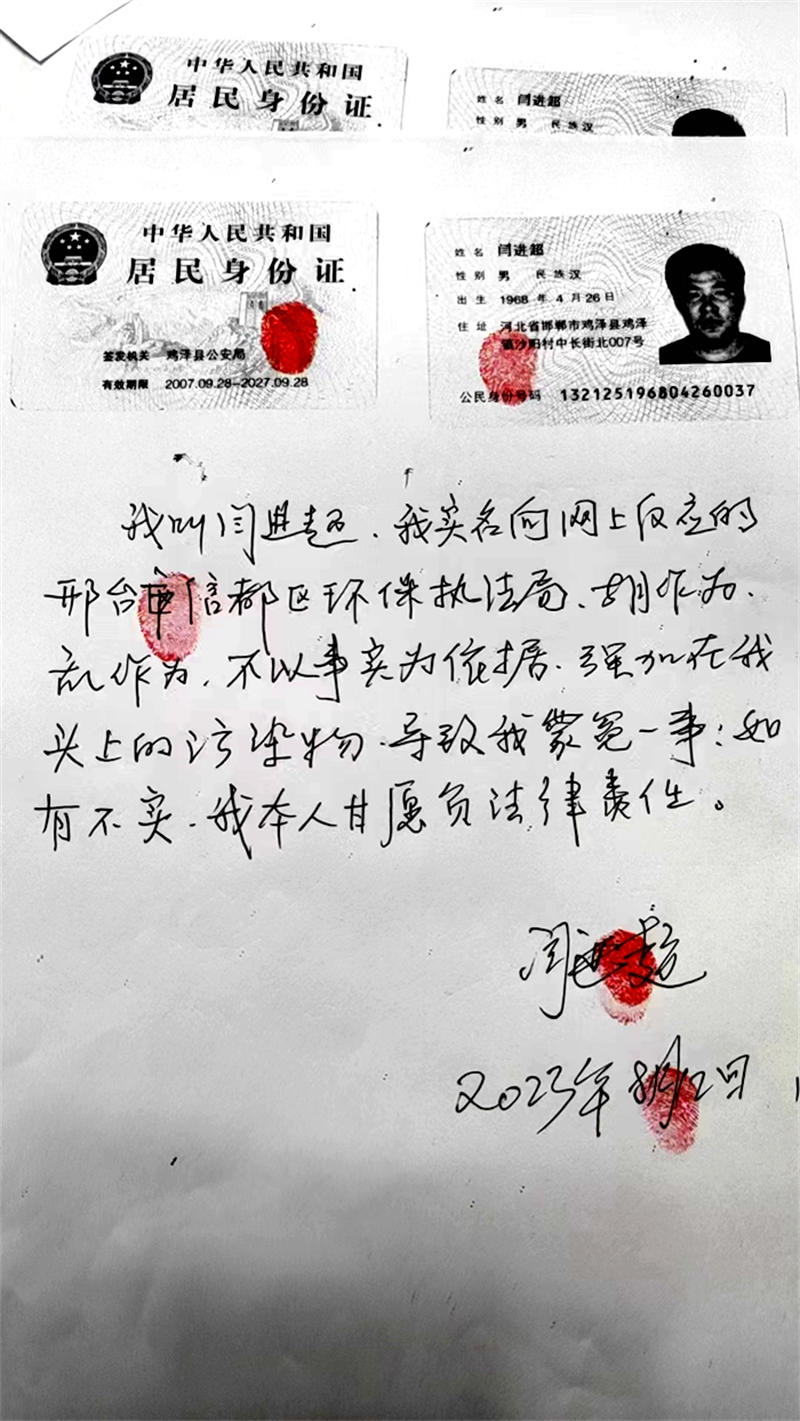 中华人民共和国
居民身份证
姓名 闫进超
性别 男 民族 汉
中华人民共和国
居民身份证
签发机关 鸡泽县公安局
有效期限 2007.09.28-2027.09.28
姓名 闫进超
性别 男 民族 汉
出生 1968 年 4 月 26 日
住址 河北省邯郸市鸡泽县鸡泽
镇沙阳村中长街北007号
公民身份号码 132125196804260037
我叫闫进超、我实名向网上反应的
邢台市信都区环保执法局、胡作为、
乱作为、不以事实为依据、强加在我
头上的污染物、导致我蒙冤一事：如
有不实、我本人甘愿负法律责任。
闫进超
2023年8月2日